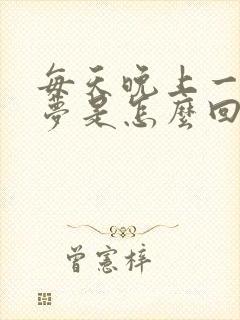 每天晚上一
夢是怎麼回
曾憲梓